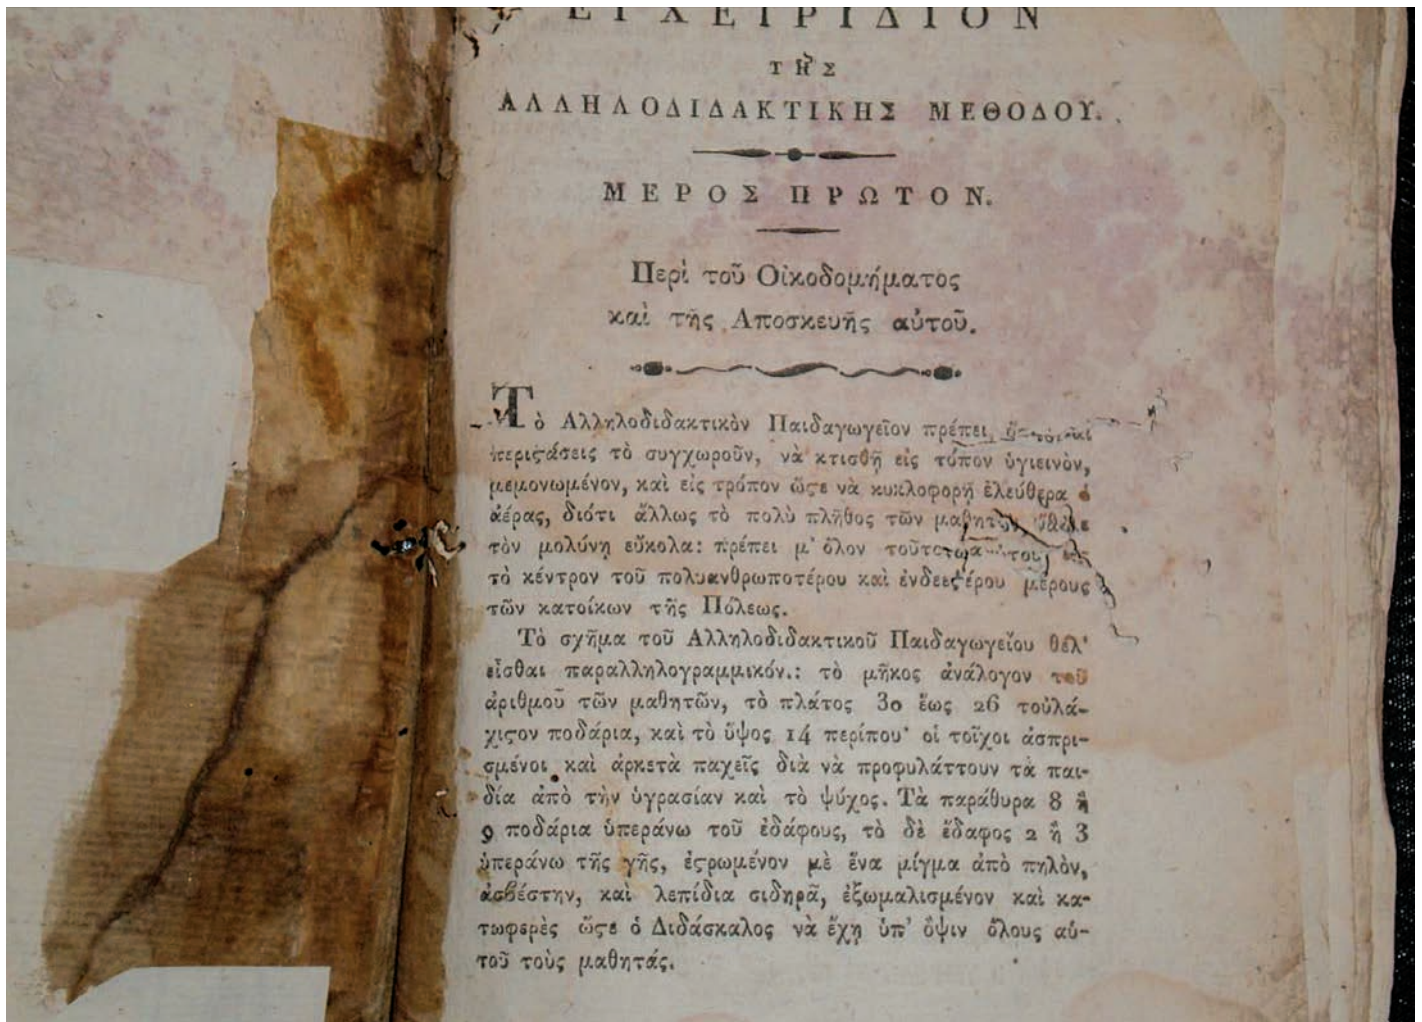 ΕΓΧΕΙΡΙΔΙΟΝ
ΤΗΣ
ΑΛΛΗΛΟΔΙΔΑΚΤΙΚΗΣ ΜΕΘΟΔΟΥ.
ΜΕΡΟΣ ΠΡΩΤΟΝ.
Περὶ τοῦ Οἰκοδομήματος
καὶ τῆς Αποσκευῆς αὐτοῦ.
Τὸ Αλληλοδιδακτικὸν Παιδαγωγεῖον πρέπει,
περιϛάσεις τὸ συγχωροῦν, νὰ κτισθῇ εἰς τόπον ὑγιεινὸν,
μεμονωμένον, καὶ εἰς τρόπον ὥϛε νὰ κυκλοφορῇ ἐλεύθερα ὁ
ἀέρας, διότι ἄλλως τὸ πολὺ πλῆθος τῶν
τὸν μολύνῃ εὔκολα: πρέπει μ' ὅλον
τὸ κέντρον τοῦ πολυανθρωποτέρου καὶ ἐνδεεϛέρου μέρους
τῶν κατοίκων τῆς Πόλεως.
Τὸ σχῆμα τοῦ Αλληλοδιδακτικοῦ Παιδαγωγείου θέλ'
εἶσθαι παραλληλογραμμικόν.: τὸ μῆκος ἀνάλογον τοῦ
ἀριθμοῦ τῶν μαθητῶν, τὸ πλάτος 30 ἕως 26 τοὐλά-
χιϛον ποδάρια, καὶ τὸ ὕψος 14 περίπου· οἱ τοῖχοι ἀσπρι-
σμένοι καὶ ἀρκετὰ παχεῖς διὰ νὰ προφυλάττουν τὰ παι-
δία ἀπὸ τὴν ὑγρασίαν καὶ τὸ ψύχος. Τὰ παράθυρα 8 ἢ
9 ποδάρια ὑπεράνω τοῦ ἐδάφους, τὸ δὲ ἔδαφος 2 ἢ 3
ὑπεράνω τῆς γῆς, ἐϛρωμένον μὲ ἕνα μίγμα ἀπὸ πηλὸν,
ἀσβέστην, καὶ λεπίδια σιδηρᾶ, ἐξωμαλισμένον καὶ κα-
τωφερὲς ὥϛε ὁ Διδάσκαλος νὰ ἔχῃ ὑπ' ὄψιν ὅλους αὐ-
τοῦ τοὺς μαθητάς.